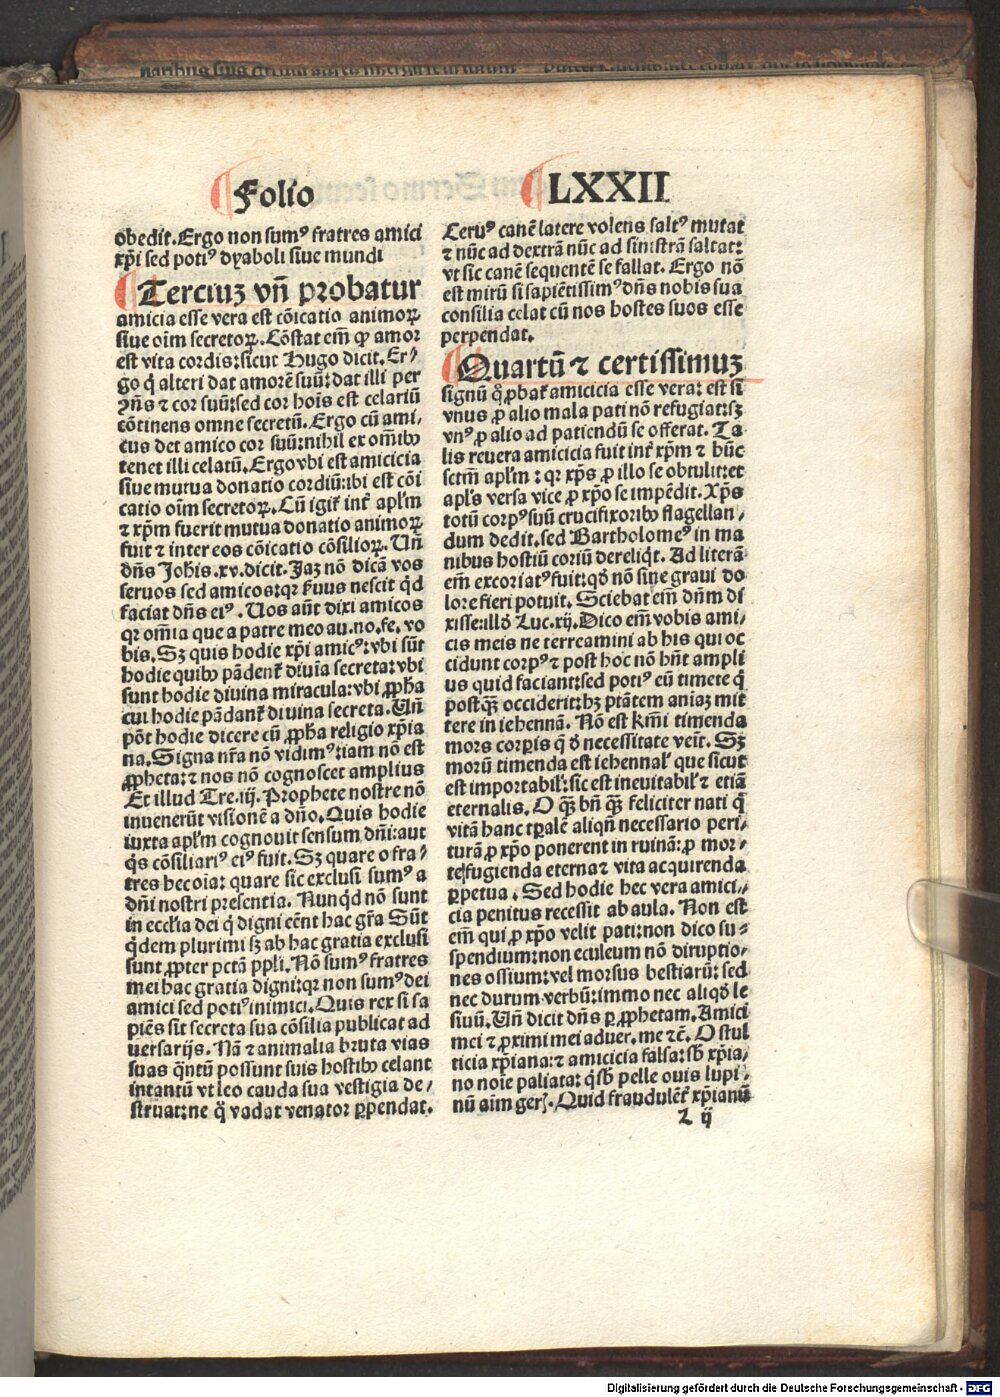 Folio LXXII
obedit. Ergo non sumꝰ fratres amici
xp̄i sed potiꝰ dyaboli siue mundi
Terciuꝫ vn̄ probatur
amicia esse vera est cōicatio animoꝝ
siue oīm secretoꝝ. Cōstat em̄ ꝙ amor
est vita cordis: sicut Hugo dicit. Er⸗
go q̇ alteri dat amorē suū: dat illi per
ꝯn̄s ⁊ cor suū: sed cor hoīs est celariū
cōtinens omne secretū. Ergo cū ami⸗
cus det amico cor suū: nihil ex om̄ibꝰ
tenet illi celatū. Ergo vbi est amicicia
siue mutua donatio cordiū: ibi est cōi
catio oīm secretoꝝ. Cū igit̄ int̄ apl̄m
⁊ xp̄m fuerit mutua donatio animoꝝ
fuit ⁊ inter eos cōicatio cōsilioꝝ. Un̄
dn̄s Joh̄is .xv. dicit. Jaꝫ nō dicā vos
seruos sed amicos: qꝛ s̄uus nescit qͥd
faciat dn̄s eiꝰ. Uos aūt dixi amicos
qꝛ om̄ia que a patre meo au. no. fe. vo
bis. Sꝫ quis hodie xp̄i amicꝰ: vbi sūt
hodie quibꝰ pādent̄ diuīa secreta: vbi
sunt hodie diuina miracula: vbi ꝓph̄a
cui hodie pādant̄ diuina secreta. Un̄
pōt hodie dicere cū ꝓph̄a religio xp̄ia
na. Signa nr̄a nō vidimꝰ: iam nō est
ꝓpheta: ⁊ nos nō cognoscet amplius
Et illud Tre. iij. Prophete nostre nō
inuenerūt visionē a dn̄o. Quis hodie
iuxta apl̄m cognouit sensum dn̄i: aut
qͥs cōsiliariꝰ eiꝰ fuit. Sꝫ quare o fra⸗
tres hec oīa: quare sic exclusi sumꝰ a
dn̄i nostri presentia. Nunqͥd nō sunt
in eccl̄ia dei q̇ digni eēnt hac gr̄a Sūt
qͥdem plurimi sꝫ ab hac gratia exclusi
sunt ꝓpter pctā ppl̄i. Nō sumꝰ fratres
mei hac gratia digni: qꝛ non sumꝰ dei
amici sed potiꝰ inimici. Quis rex si sa
piēs sit secreta sua cōsilia publicat ad
uersarijs. Nā ⁊ animalia bruta vias
suas qͣntū possunt suis hostibꝰ celant
intantū vt leo cauda sua vestigia de⸗
struat: ne q̇̄ vadat venator ꝑpendat.
Ceruꝰ canē latere volens saltꝰ mutat
⁊ nūc ad dextrā nūc ad sinistrā saltat:
vt sic canē sequentē se fallat. Ergo nō
est mirū si sapiētissimꝰ dn̄s nobis sua
consilia celat cū nos hostes suos esse
perpendat.
Quartū ⁊ certissimuꝫ
signū ꝙ ꝓbat̄ amicicia esse vera: est si
vnus ꝓ alio mala pati nō refugiat: sꝫ
vnꝰ ꝓ alio ad patiendū se offerat. Ta
lis reuera amicicia fuit int̄ xp̄m ⁊ hūc
sctm̄ apl̄m: qꝛ xp̄s ꝓ illo se obtulit: et
apl̄s versa vice ꝓ xp̄o se impēdit. Xp̄s
totū corpꝰ suū crucifixoribꝰ flagellan⸗
dum dedit. sed Bartholomeꝰ in ma
nibus hostiū coriū dereliqͥt. Ad literā
em̄ excoriatꝰ fuit: qd̄ nō sine graui do
lore fieri potuit. Sciebat em̄ dn̄m di
xisse: illd̄ Luc. xij. Dico em̄ vobis ami⸗
cis meis ne terreamini ab his qui oc
cidunt corpꝰ ⁊ post hoc nō hn̄t ampli
us quid faciant: sed potiꝰ eū timete q̇
postqͣꝫ occiderit: hꝫ ptātem aniaꝫ mit
tere in iehennā. Nō est km̄i timenda
mors corpis q̄ d̄ necessitate veīt. Sꝫ
morū timenda est iehennal̄ que sicut
est importabil̄: sic est ineuitabil̄ ⁊ etiā
eternalis. O qͣꝫ bn̄ qͣꝫ feliciter nati q̇
vitā hanc tꝑalē aliqn̄ necessario peri⸗
turā ꝓ xp̄o ponerent in ruinā: ꝓ mor⸗
te fugienda eterna ⁊ vita acquirenda
ꝑpetua. Sed hodie hec vera amici⸗
cia penitus recessit ab aula. Non est
em̄ qui ꝓ xp̄o velit pati: non dico su⸗
spendium: non eculeum nō diruptio⸗
nes ossium: vel morsus bestiarū: sed
nec durum verbū: immo nec aliqd̄ le
siuū. Un̄ dicit dn̄s ꝑ ꝓphetam. Amici
mei ⁊ ꝓximi mei aduer. me ⁊c̄. O stul
ticia xp̄iana: ⁊ amicicia falsa: sb̄ xp̄ia⸗
no noīe paliata: q̄ sb̄ pelle ouis lupi⸗
nū aīm gerꝭ. Quid fraudulēt̄ xp̄ianū
L ij
Digitalisierung gefördert durch die Deutsche Forschungsgemeinschaft - DFG